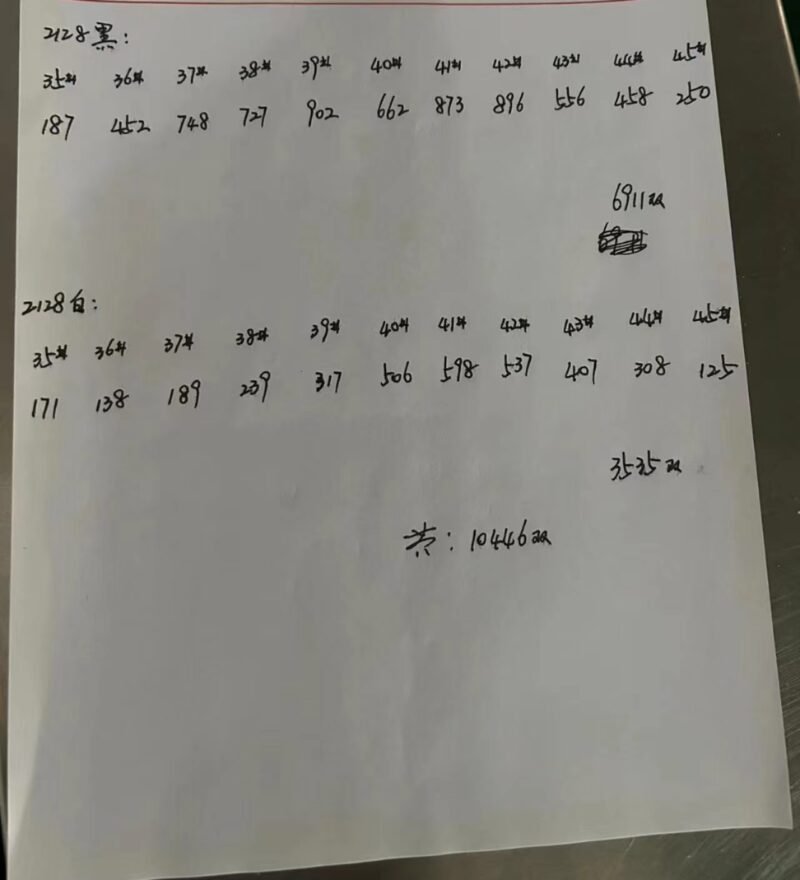 2128黑:
35# 36# 37# 38# 39# 40# 41# 42# 43# 44# 45#
187 452 748 727 902 662 873 896 556 458 250
6911双
2128白:
35# 36# 37# 38# 39# 40# 41# 42# 43# 44# 45#
171 138 189 239 317 506 598 537 407 308 125
3535双
共: 10446双